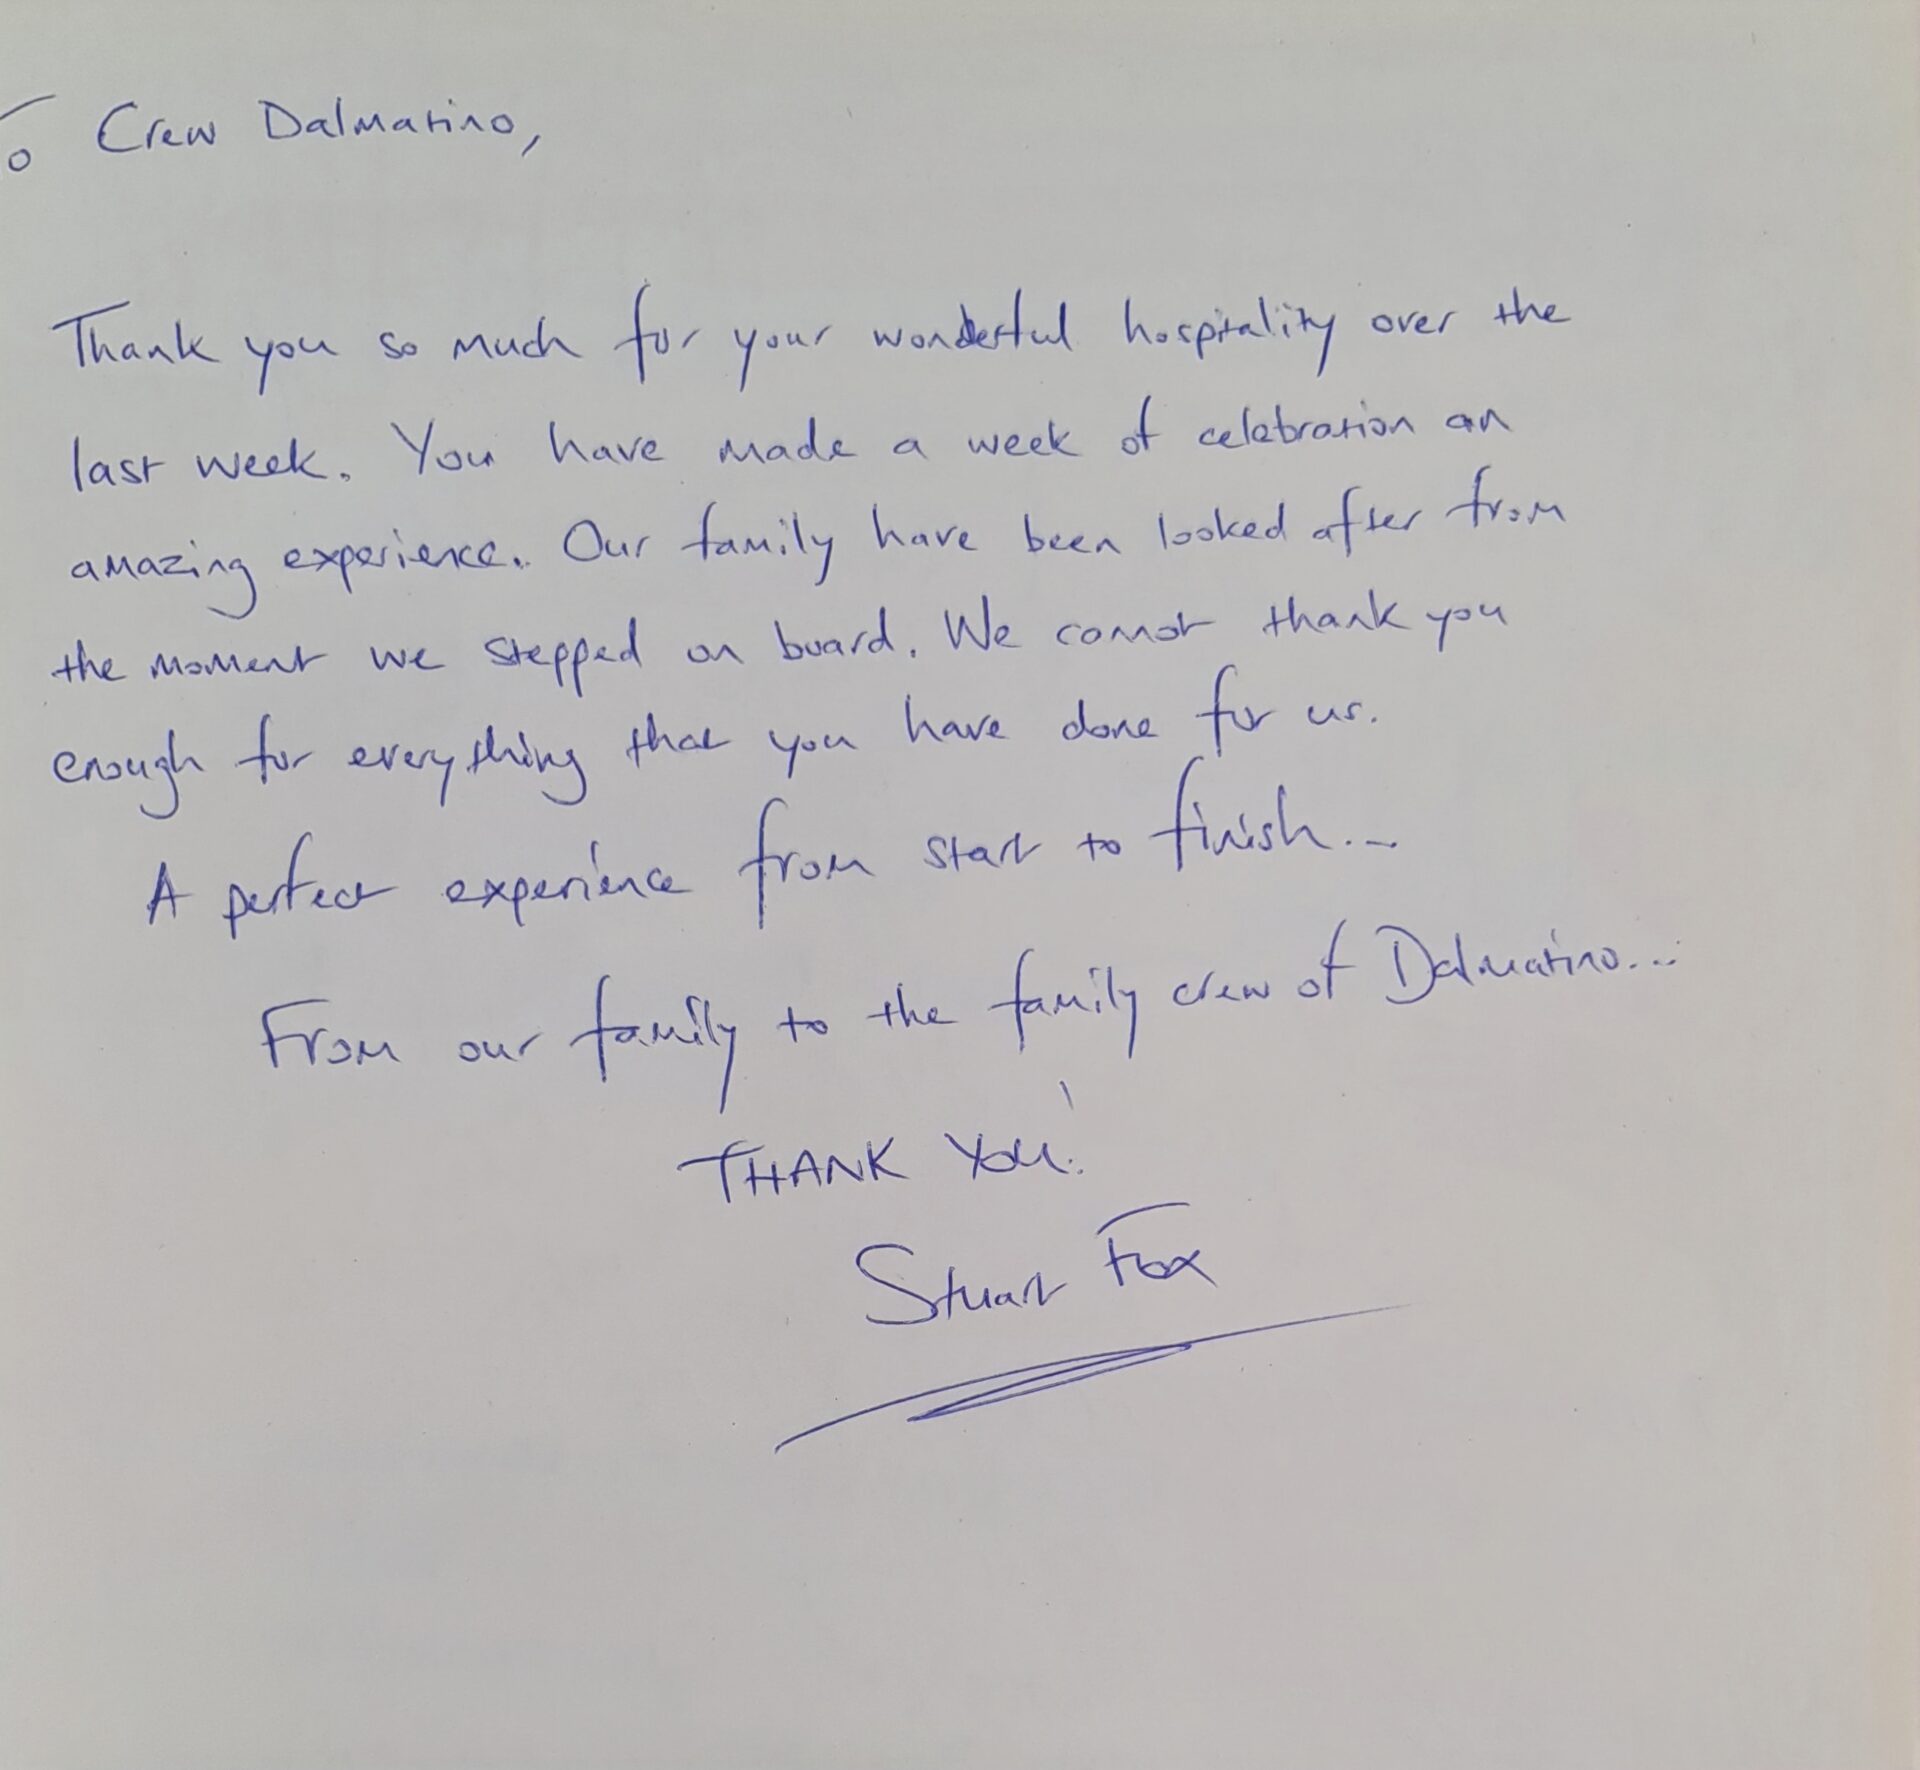 To Crew Dalmatino,
Thank you so much for your wonderful hospitality over the
last week. You have made a week of celebration an
amazing experience. Our family have been looked after from
the moment we stepped on board. We cannot thank you
enough for everything that you have done for us.
A perfect experience from start to finish...
From our family to the family crew of Dalmatino...
THANK YOU!
Stuart Fox